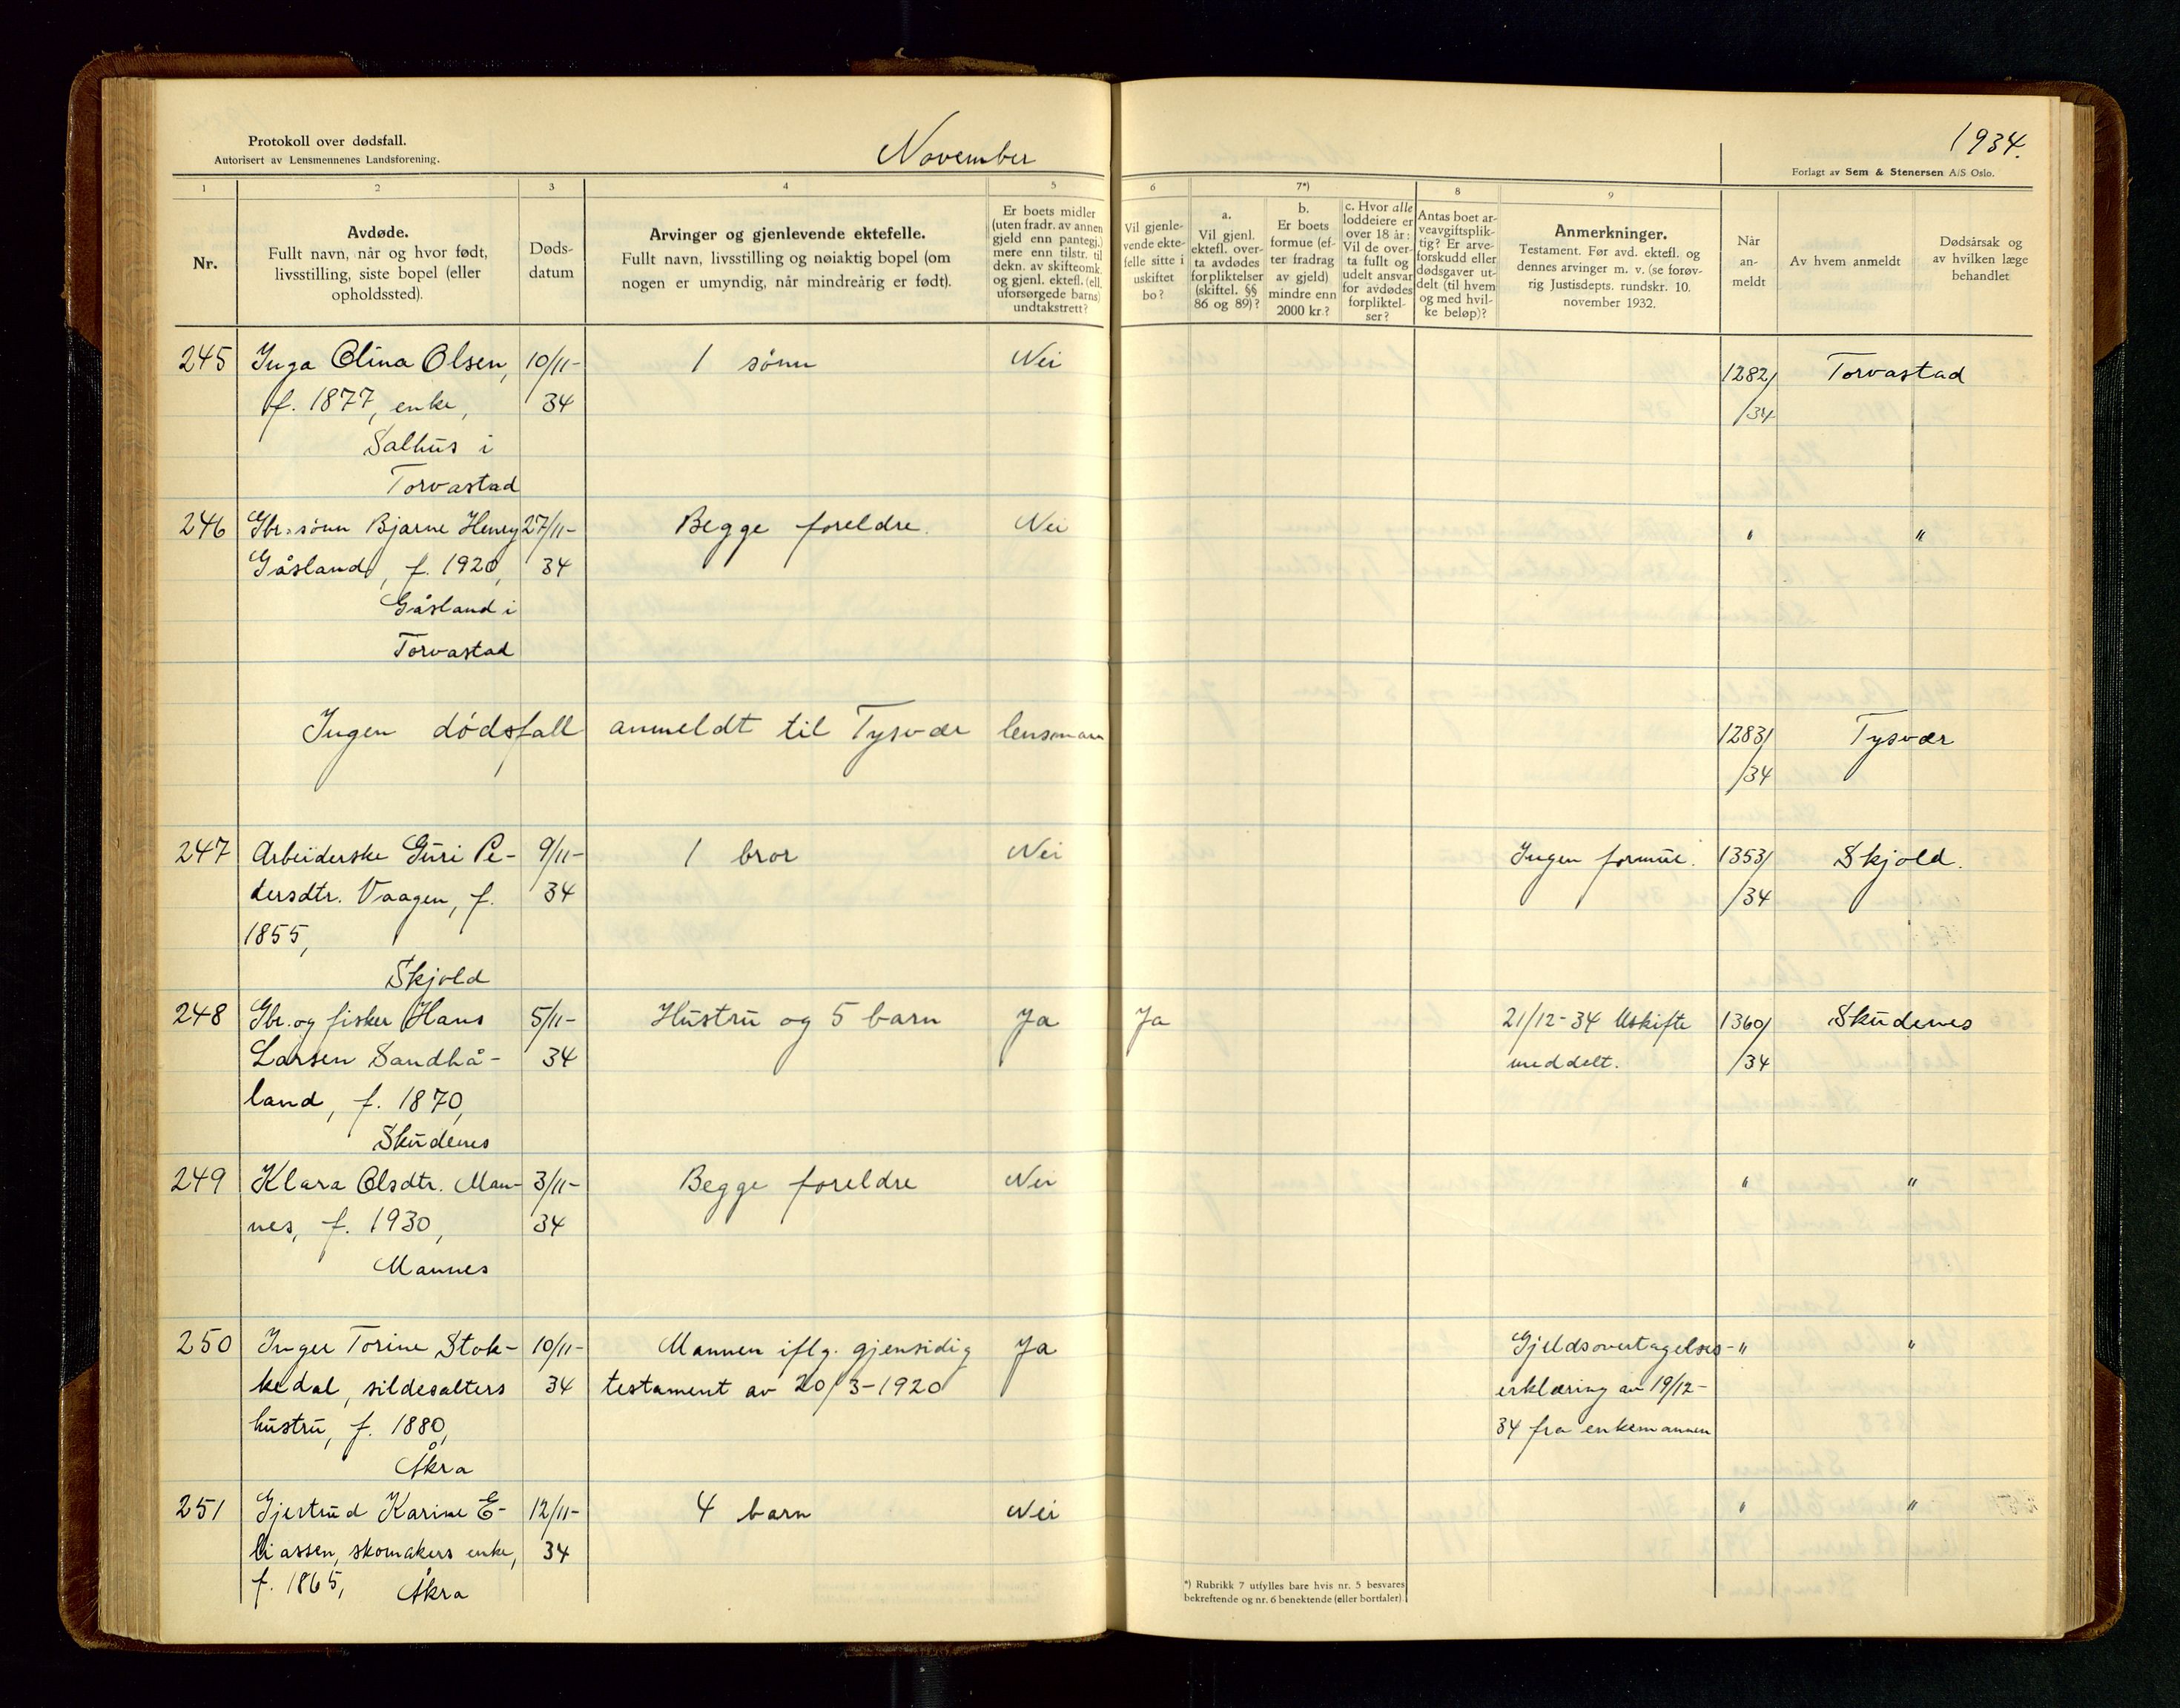 Protokoll over dødsfall.
Autorisert av Lensmennenes Landsforening.
November
1934.
Forlagt av Sem & Stenersen A/S Oslo.
1 2 3 4 5 6 7*) 8 9
Nr.
Avdøde.
Fullt navn, når og hvor født,
livsstilling, siste bopel (eller
opholdssted).
Døds-
datum
Arvinger og gjenlevende ektefelle.
Fullt navn, livsstilling og nøiaktig bopel (om
nogen er umyndig, når mindreårig er født).
Er boets midler
(uten fradr. av annen
gjeld enn pantegj.)
mere enn tilstr. til
dekn. av skifteomk.
og gjenl. ektefl. (ell.
uforsørgede barns)
undtakstrett?
Vil gjenle-
vende ekte-
felle sitte i
uskiftet
bo?
a.
Vil gjenl.
ektefl. over-
ta avdødes
forpliktelser
(skiftel. §§
86 og 89)?
b.
Er boets
formue (ef-
ter fradrag
av gjeld)
mindre enn
2000 kr.?
c. Hvor alle
loddeiere er
over 18 år:
Vil de over-
ta fullt og
udelt ansvar
for avdødes
forpliktel-
ser?
Antas boet ar-
veavgiftsplik-
tig? Er arve-
forskudd eller
dødsgaver ut-
delt (til hvem
og med hvil-
ke beløp)?
Anmerkninger.
Testament. Før avd. ektefl. og
dennes arvinger m. v. (se forøv-
rig Justisdepts. rundskr. 10.
november 1932.
Når
an-
meldt
Av hvem anmeldt
Dødsårsak og
av hvilken læge
behandlet
245 Inga Olina Olsen, 10/11- 1 sønn Nei 1282/ Torvastad
f. 1877, enke, 34 /34
Salhus i
Torvastad
246 Gbr.sønn Bjarne Henry 27/11- Begge foreldre. Nei " "
Gåsland, f. 1920, 34
Gåsland i
Torvastad
Ingen dødsfall anmeldt til Tysvær lensmann 1283/ Tysvær
/34
247 Arbeiderske Guri Pe- 9/11- 1 bror Nei Ingen formue. 1353/ Skjold.
dersdtr. Vaagen, f. 34 /34
1855,
Skjold
248 Gbr. og fisker Hans 5/11- Hustru og 5 barn Ja Ja 21/12-34 Uskifte 1360/ Skudenes
Larsen Sandhå- 34 meddelt. /34
land, f. 1870,
Skudenes
249 Klara Olsdtr. Man- 3/11- Begge foreldre Nei " "
nes, f. 1930, 34
Mannes
250 Inger Torine Stok- 10/11- Mannen iflg. gjensidig Ja Gjeldsovertagelses- " "
kedal, sildesalters 34 testament av 20/3-1920 erklæring av 19/12-
hustru, f. 1880, 34 fra enkemannen
Åkra
251 Gjertrud Karine E- 12/11- 4 barn Nei " "
liassen, skomakers enke, 34
f. 1865, Åkra
*) Rubrikk 7 utfylles bare hvis nr. 5 besvares
bekreftende og nr. 6 benektende (eller bortfaler).